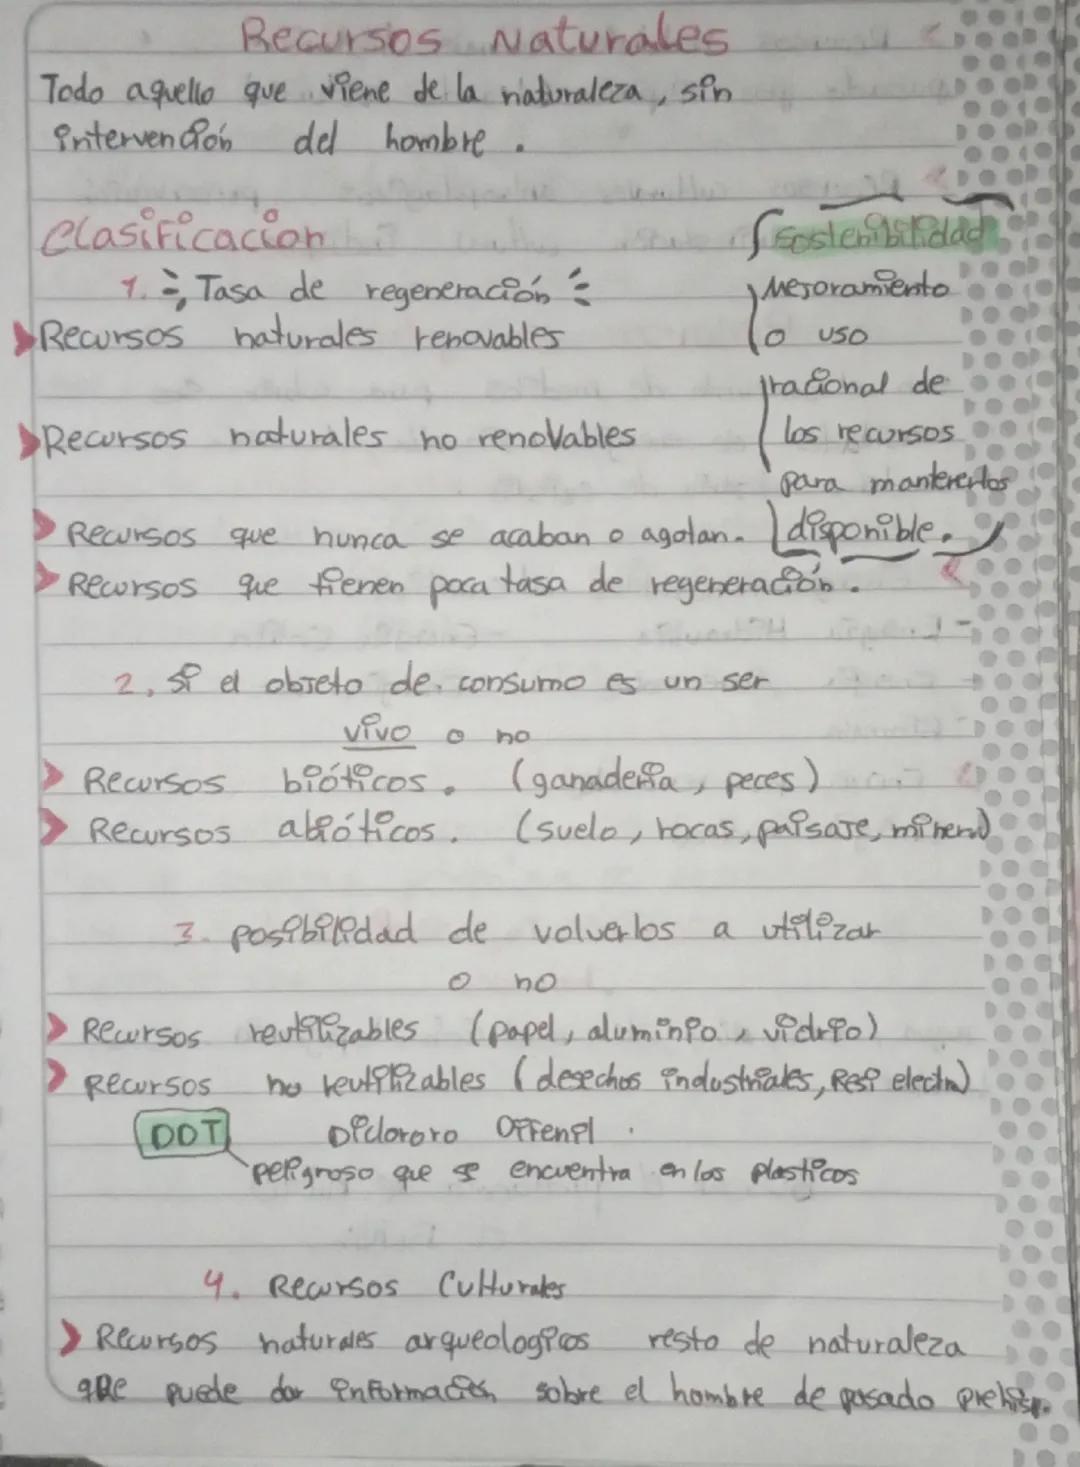 Recursos Naturales
Todo aquello que viene de la naturaleza, sin
intervención del hombre.
Clasificacion
1. Tasa de regeneración
Recursos naturales renovables
Recursos naturales no renovables
Sostenibilidad
Mejoramiento
o uso
racional de
los recursos
para mantenerlos
disponible.
Recursos que nunca se acaban o agotan.
Recursos que tienen poca tasa de regeneración.
2. Si el objeto de consumo es un ser
vivo o no
Recursos bióticos. (ganadería, peces)
Recursos abióticos. (suelo, rocas, paisaje, mineral)
3. posibilidad de volverlos a utilizar
o no
Recursos reutilizables (papel, aluminio, vidrio)
Recursos no reutilizables (desechos industriales, Resi electro)
DDT Diclororo Difenil.
peligroso que se encuentra en los plasticos
4. Recursos Culturales
Recursos naturales arqueologicos resto de naturaleza
que puede dar información sobre el hombre de pasado prehisp.